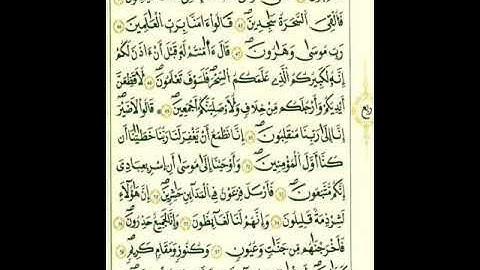 فَأُلْقِيَ السَّحَرَةُ سَاجِدِينَ ۝ قَالُوا ءَامَنَّا بِرَبِّ الْعَالَمِينَ
رَبِّ مُوسَى وَهَارُونَ ۝ قَالَ ءَامَنْتُمْ لَهُ قَبْلَ أَنْ ءَاذَنَ لَكُمْ
إِنَّهُ لَكَبِيرُكُمُ الَّذِي عَلَّمَكُمُ السِّحْرَ فَلَسَوْفَ تَعْلَمُونَ ۝ لَأُقَطِّعَنَّ
أَيْدِيَكُمْ وَأَرْجُلَكُمْ مِنْ خِلَافٍ وَلَأُصَلِّبَنَّكُمْ أَجْمَعِينَ ۝ قَالُوا لَا ضَيْرَ
إِنَّا إِلَى رَبِّنَا مُنْقَلِبُونَ ۝ إِنَّا نَطْمَعُ أَنْ يَغْفِرَ لَنَا رَبُّنَا خَطَايَانَا أَنْ
كُنَّا أَوَّلَ الْمُؤْمِنِينَ ۝ وَأَوْحَيْنَا إِلَى مُوسَى أَنْ أَسْرِ بِعِبَادِي
إِنَّكُمْ مُتَّبَعُونَ ۝ فَأَرْسَلَ فِرْعَوْنُ فِي الْمَدَائِنِ حَاشِرِينَ ۝ إِنَّ هَؤُلَاءِ
لَشِرْذِمَةٌ قَلِيلُونَ ۝ وَإِنَّهُمْ لَنَا لَغَائِظُونَ ۝ وَإِنَّا لَجَمِيعٌ حَذِرُونَ ۝
فَأَخْرَجْنَاهُمْ مِنْ جَنَّاتٍ وَعُيُونٍ ۝ وَكُنُوزٍ وَمَقَامٍ كَرِيمٍ ۝
ربع